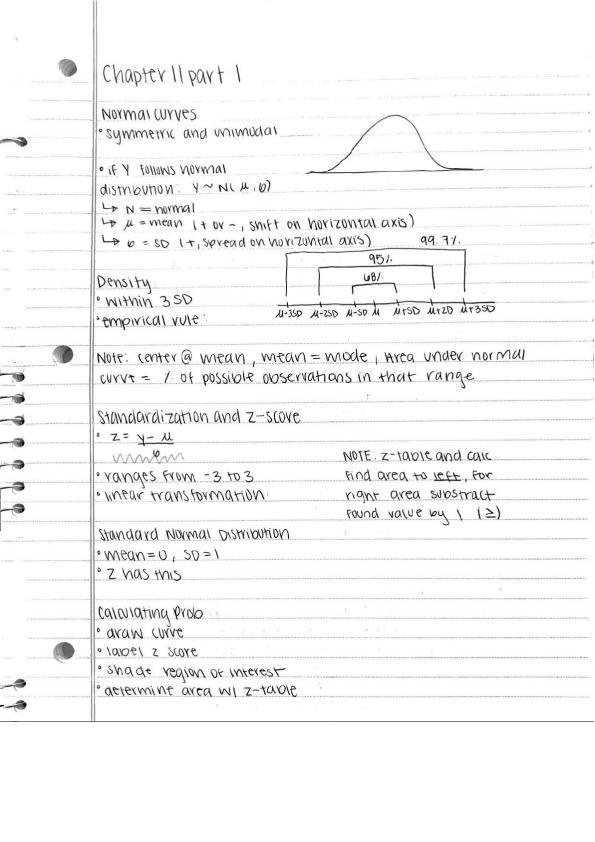 Chapter 11 part 1
Normal curves
• symmetric and unimodal
• if Y follows normal
distribution: Y ~ N( μ, σ)
↳ N = normal
↳ μ = mean (+ or -, shift on horizontal axis)
↳ σ = SD (+, spread on horizontal axis)
99.7%
95%
68%
μ-3SD μ-2SD μ-SD μ μ+SD μ+2D μ+3SD
Density
• within 3 SD
• empirical rule:
Note: center @ mean, mean = mode, Area under normal
curve = % of possible observations in that range
Standardization and z-score
• z = y - μ
σ
• ranges from -3 to 3
• linear transformation
NOTE: z-table and calc
find area to left, for
right area substract
found value by 1 (≥)
Standard Normal Distribution
• mean = 0, SD = 1
• Z has this
Calculating Prob
• draw curve
• label z score
• shade region of interest
• determine area w/ z-table